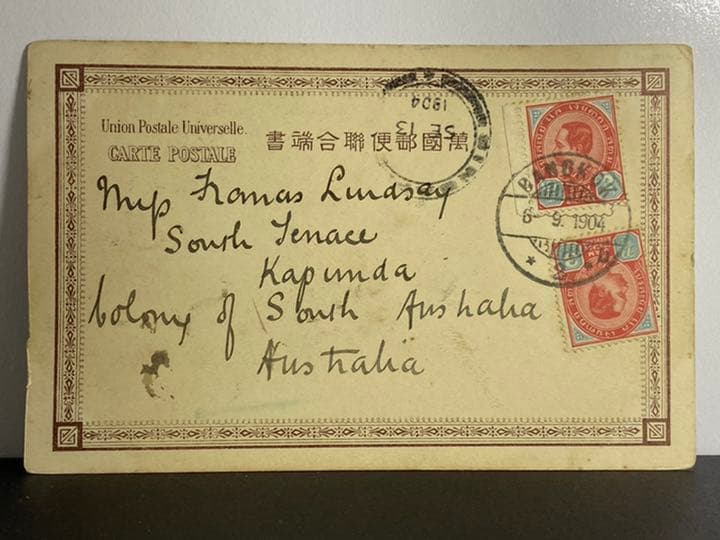 Union Postale Universelle.
CARTE POSTALE
書端合聯便郵國萬
SE 13
1904
BANGKOK
6-9.1904
Miss Frances Lindsay
South Terrace
Kapunda
Colony of South Australia
Australia